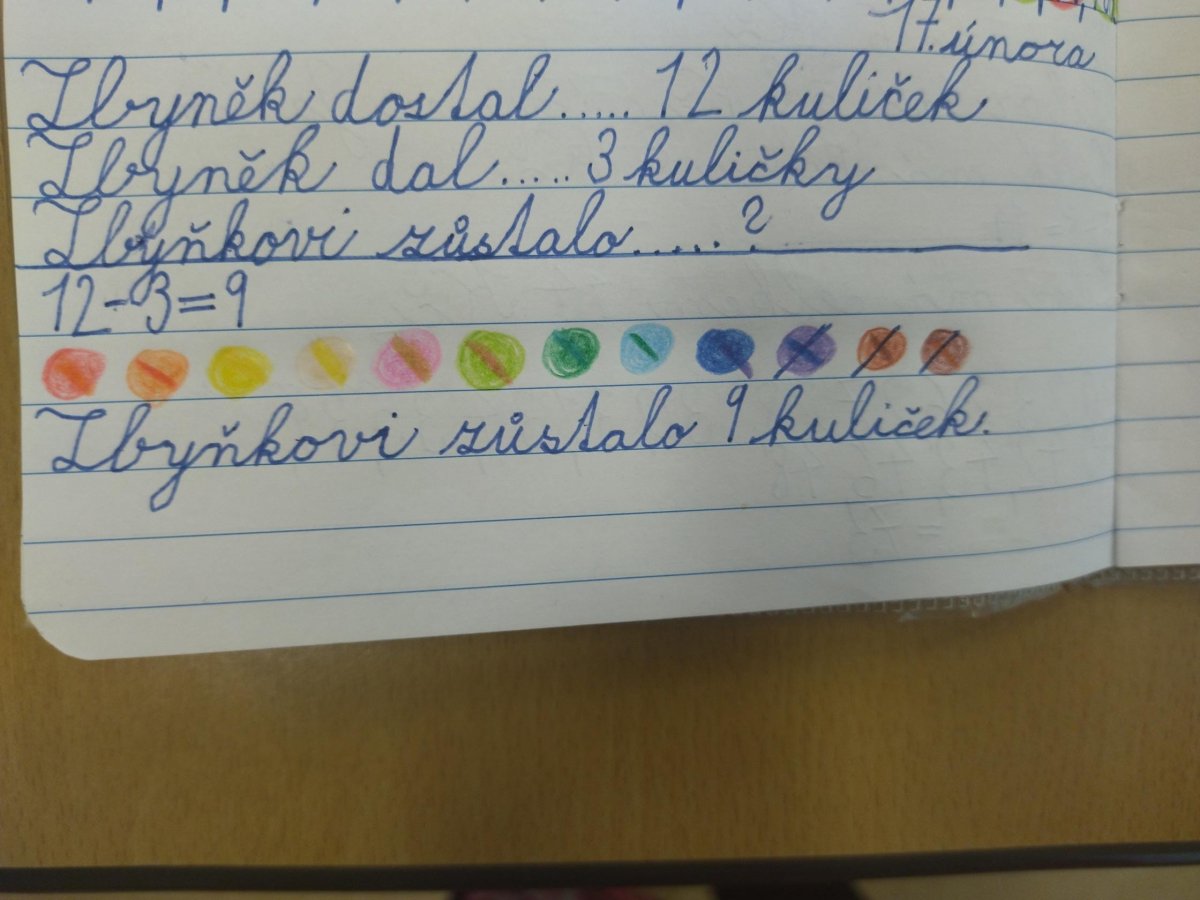 17. února
Zbyněk dostal ..... 12 kuliček
Zbyněk dal ..... 3 kuličky
Zbyňkovi zůstalo ..... ?
12-3=9
Zbyňkovi zůstalo 9 kuliček.